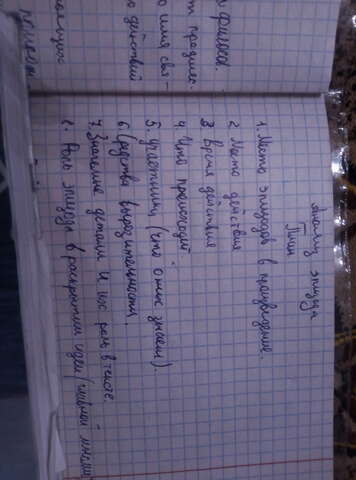 Анализ эпизода
План
1. Место эпизодов в произведение.
2 Место действия
3 Время действия
4. Что происходит
5. участники, (что о них знаем).
6 Средства выразительности.
7. Значимые детали и их роль в тексте.
8. Роль эпизода в раскрытии идеи (главной мысли
философ.
предме
о имя свя-
действий